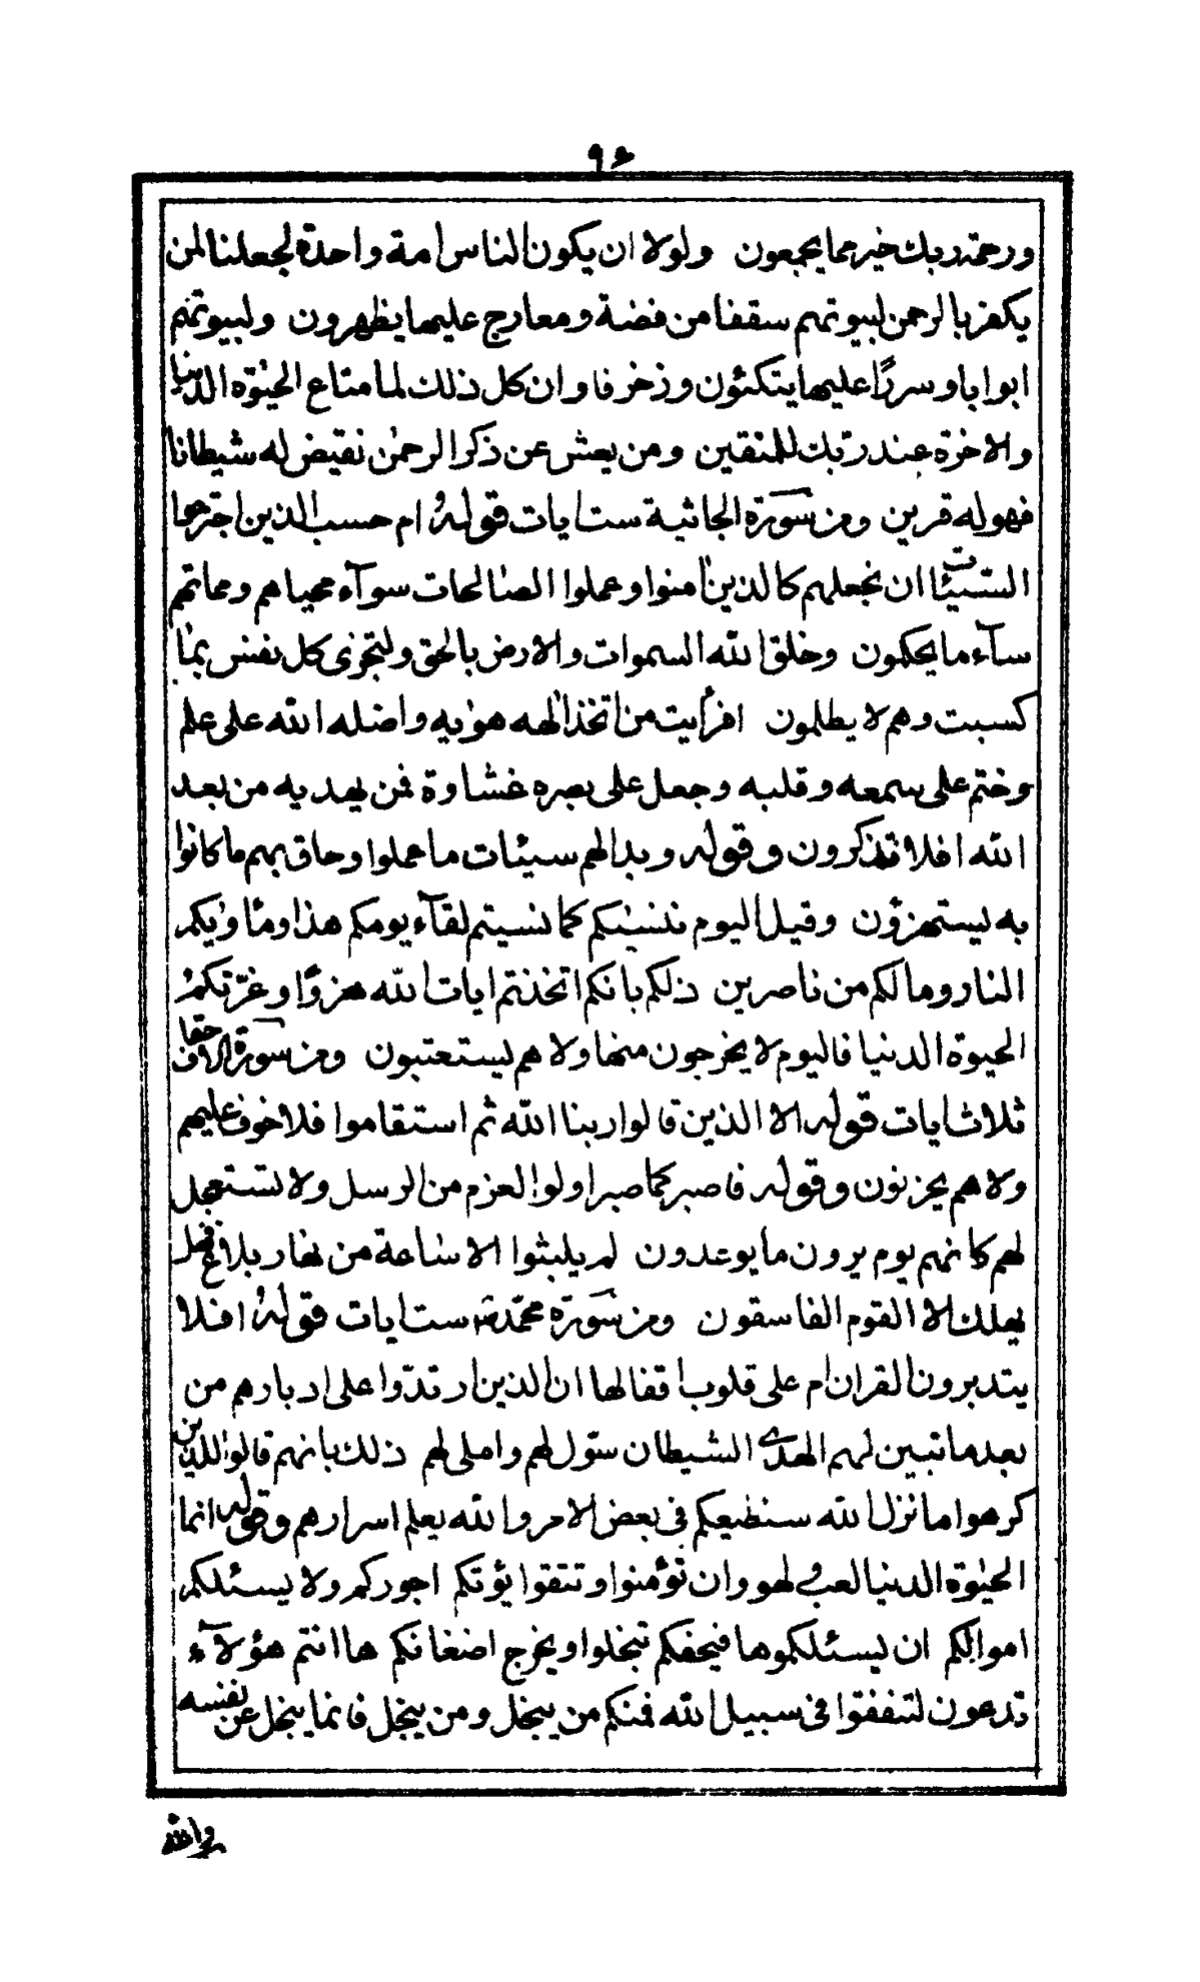 ٩۶
ورحمة ربك خير مما يجمعون ولولا ان يكون الناس امة واحدة لجعلنا لمن
يكفر بالرحمن لبيوتهم سقفا من فضة ومعارج عليها يظهرون ولبيوتهم
ابوابا وسررًا عليها يتكئون وزخرفا وان كل ذلك لما متاع الحيٰوة الدنيا
والاخرة عند ربك للمتقين ومن يعش عن ذكر الرحمٰن نقيض له شيطانا
فهو له قرين ومن سورة الجاثية ست ايات قوله ام حسب الذين اجترحوا
السيّئات ان نجعلهم كالذين اٰمنوا وعملوا الصالحات سوآء محياهم ومماتهم
سآء ما يحكمون وخلق الله السموات والارض بالحق ولتجزى كل نفس بما
كسبت وهم لا يظلمون افرأيت من اتخذ الٰهه هوٰيه واضله الله على علم
وختم على سمعه وقلبه وجعل على بصره غشاوة فمن يهديه من بعد
الله افلا تذكرون وقوله وبدا لهم سيئات ما عملوا وحاق بهم ما كانوا
به يستهزؤن وقيل اليوم ننسيٰكم كما نسيتم لقآء يومكم هذا ومأويٰكم
النار وما لكم من ناصرين ذلكم بانكم اتخذتم ايات الله هزوًا وغرّتكم
الحيوة الدنيا فاليوم لا يخرجون منها ولا هم يستعتبون ومن سورة الاحقاف
ثلاث ايات قوله الا الذين قالوا ربنا الله ثم استقاموا فلا خوف عليهم
ولا هم يحزنون وقوله فاصبر كما صبر اولوا العزم من الرسل ولا تستعجل
لهم كانهم يوم يرون ما يوعدون لم يلبثوا الا ساعة من نهار بلاغ فهل
يهلك الا القوم الفاسقون ومن سورة محمّد ص ست ايات قوله افلا
يتدبرون القران ام على قلوب اقفالها ان الذين ارتدّوا على ادبارهم من
بعد ما تبين لهم الهدى الشيطان سوّل لهم واملى لهم ذلك بانهم قالوا للذين
كرهوا ما نزل الله سنطيعكم فى بعض الامر والله يعلم اسرارهم وقوله انما
الحيٰوة الدنيا لعب ولهو وان تؤمنوا وتتقوا يؤتكم اجوركم ولا يسئلكم
اموالكم ان يسئلكموها فيحفكم تبخلوا ويخرج اضغانكم ها انتم هؤلآء
تدعون لتنفقوا فى سبيل الله فمنكم من يبخل ومن يبخل فانما يبخل عن نفسه
والله